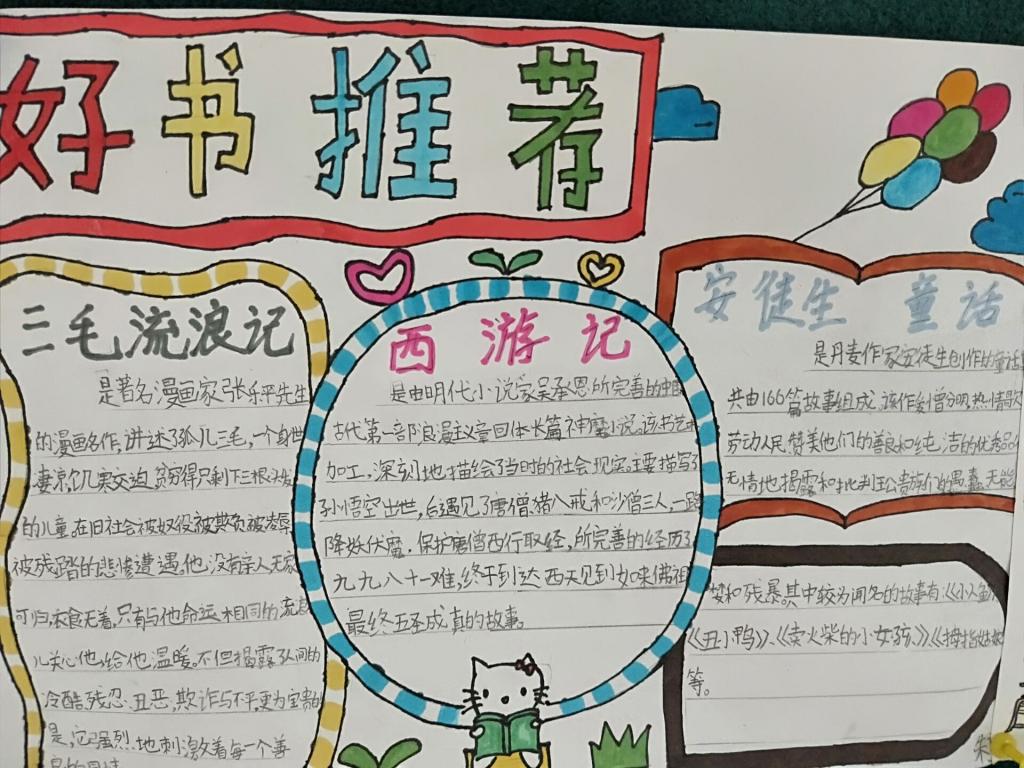 好书推荐
三毛流浪记
是著名漫画家张乐平先生
的漫画名作,讲述了孤儿三毛,一个身世
凄凉,饥寒交迫,贫穷得只剩下三根头发
的儿童,在旧社会被奴役被欺负被凌辱
被残踏的悲惨遭遇,他没有亲人无家
可归,衣食无着,只有与他命运相同的流浪
儿关心他,给他温暖。不但揭露了人间的
冷酷、残忍、丑恶,欺诈与不平,更为宝贵的
是,它强烈地刺激着每一个善
西游记
是由明代小说家吴承恩所完善的中国
古代第一部浪漫主义章回体长篇神魔小说。该书艺术
加工,深刻地描绘了当时的社会现实。主要描写了
孙悟空出世,后遇见了唐僧、猪八戒和沙僧三人,一路
降妖伏魔,保护唐僧西行取经,所完善的经历了
九九八十一难,终于到达西天见到如来佛祖
最终五圣成真的故事。
安徒生 童话
是丹麦作家安徒生创作的童话
共由166篇故事组成。该作爱憎分明,热情歌
劳动人民,赞美他们的善良和纯洁的优秀品
无情地揭露和批判王公贵族们的愚蠢无能
婪和残暴。其中较为闻名的故事有:《小人鱼
《丑小鸭》、《卖火柴的小女孩》、《拇指姑娘
等。